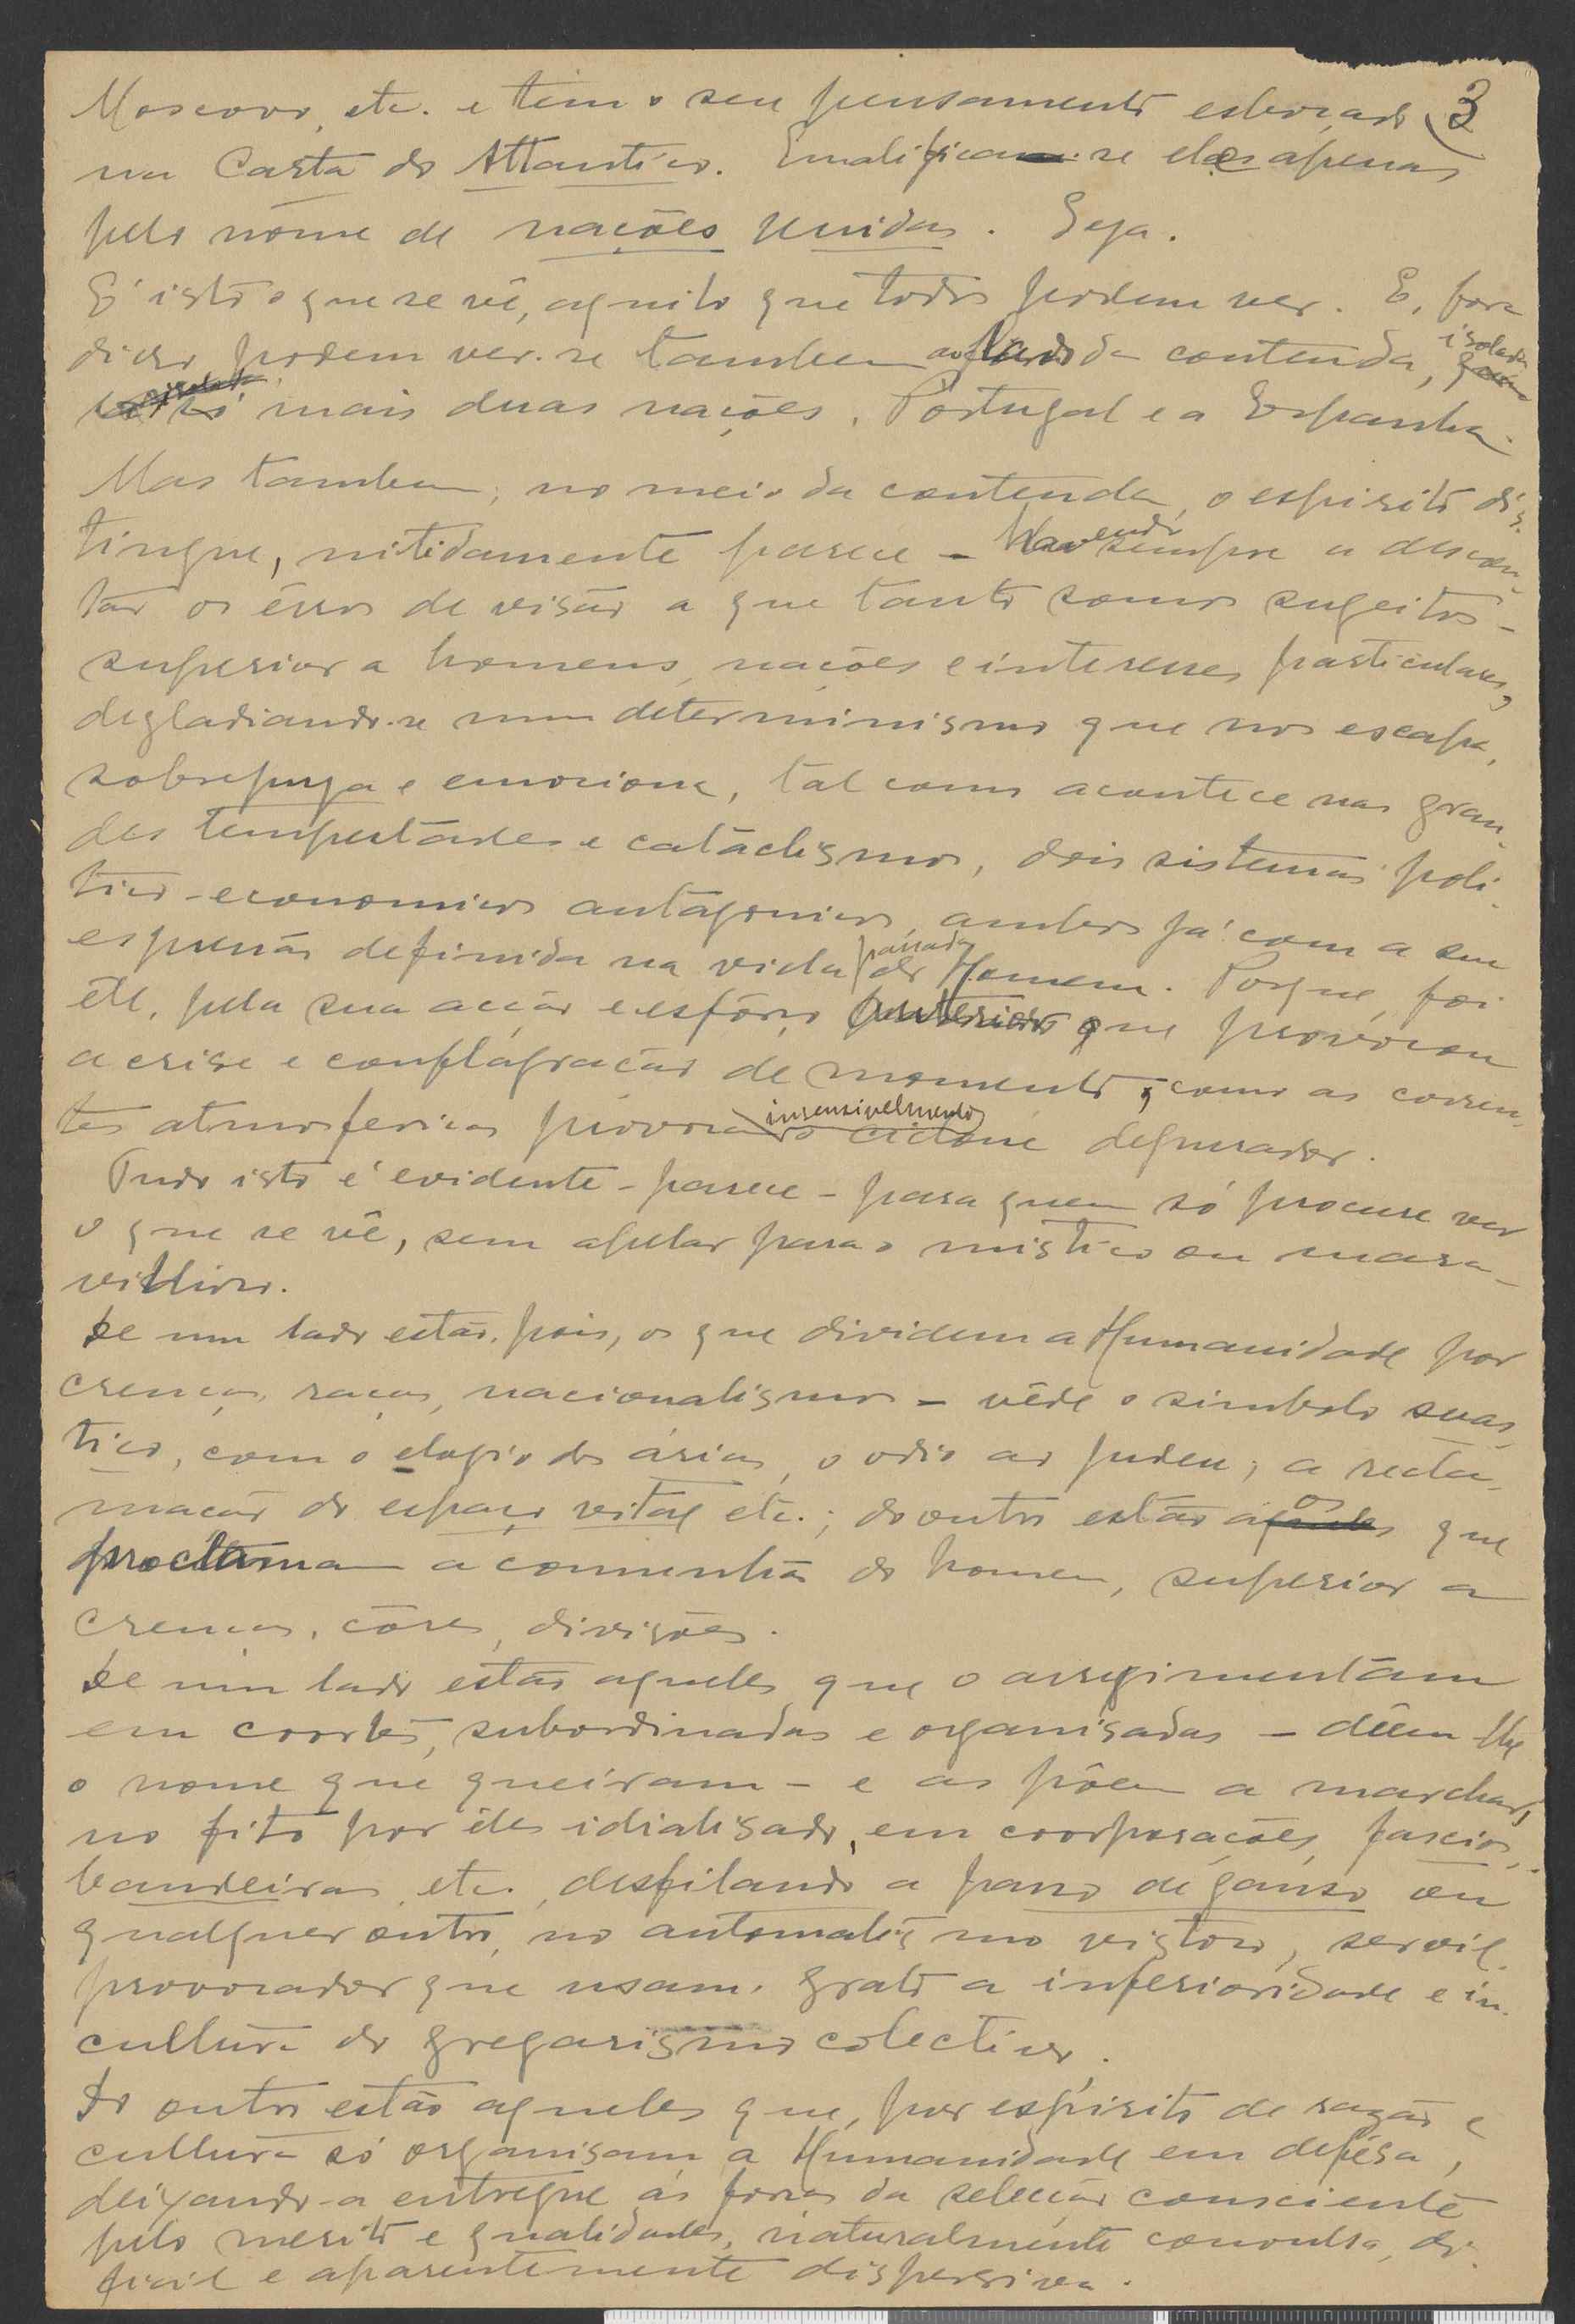 3
Moscovo, etc. e têm o seu pensamento esboçado
na Carta do Atlantico. Qualificam-se eles apenas
pelo nome de nações unidas. Seja.
E' isto o que se vê, aquilo que todos podem ver. E, fora
disso podem ver-se tambem ao lado da contenda, isoladas
só mais duas nações, Portugal e a Espanha.
Mas tambem, no meio da contenda, o espirito dis-
tingue, nitidamente parece - havendo sempre a descon-
tar os érros de visão a que tanto somos sugeitos -
superior a homens, nações e interesses particulares,
degladiando-se num determinismo que nos escapa,
sobrepuja e emociona, tal como acontece nas gran-
des tempestades e cataclismos, dois sistemas poli-
tico-economicos antagonicos, ambos já com a sua
expressão definida na vida passada do Homem. Porque foi
êle, pela sua acção e esfôrço anteriores que provocou
a crise e conflagração de momento, como as corren-
tes atmosfericas provocam insensivelmente o ciclone depurador.
Tudo isto é evidente - parece - para quem só procure ver
o que se vê, sem apelar para o mistico ou mara-
vilhoso.
De um lado estão, pois, os que dividem a Humanidade por
crenças, raças, nacionalismos - vêde o simbolo suas-
tico, com o elogio dos árias, o odio ao judeu, a recla-
mação do espaço vital etc.; do outro estão os que
proclamam a comunhão do homem, superior a
crenças, côres, divisões.
De um lado estão aqueles que o arregimentam
em coortes, subordinadas e organisadas - dêem-lhe
o nome que queiram - e as põem a marchar,
no fito por êles idialisado, em coorporações, fascios,
bandeiras, etc., desfilando a passo de ganso ou
qualquer outro, no automatismo vistoso, servil,
provocador que usam, grato a inferioridade e in-
cultura do gregarismo colectivo.
Do outro estão aqueles que, por espirito de razão e
cultura só organisam a Humanidade em defêsa,
deixando-a entregue ás forças da selecção consciente
pelo merito e qualidades, naturalmente convulsa, di-
ficil e aparentemente dispersiva.